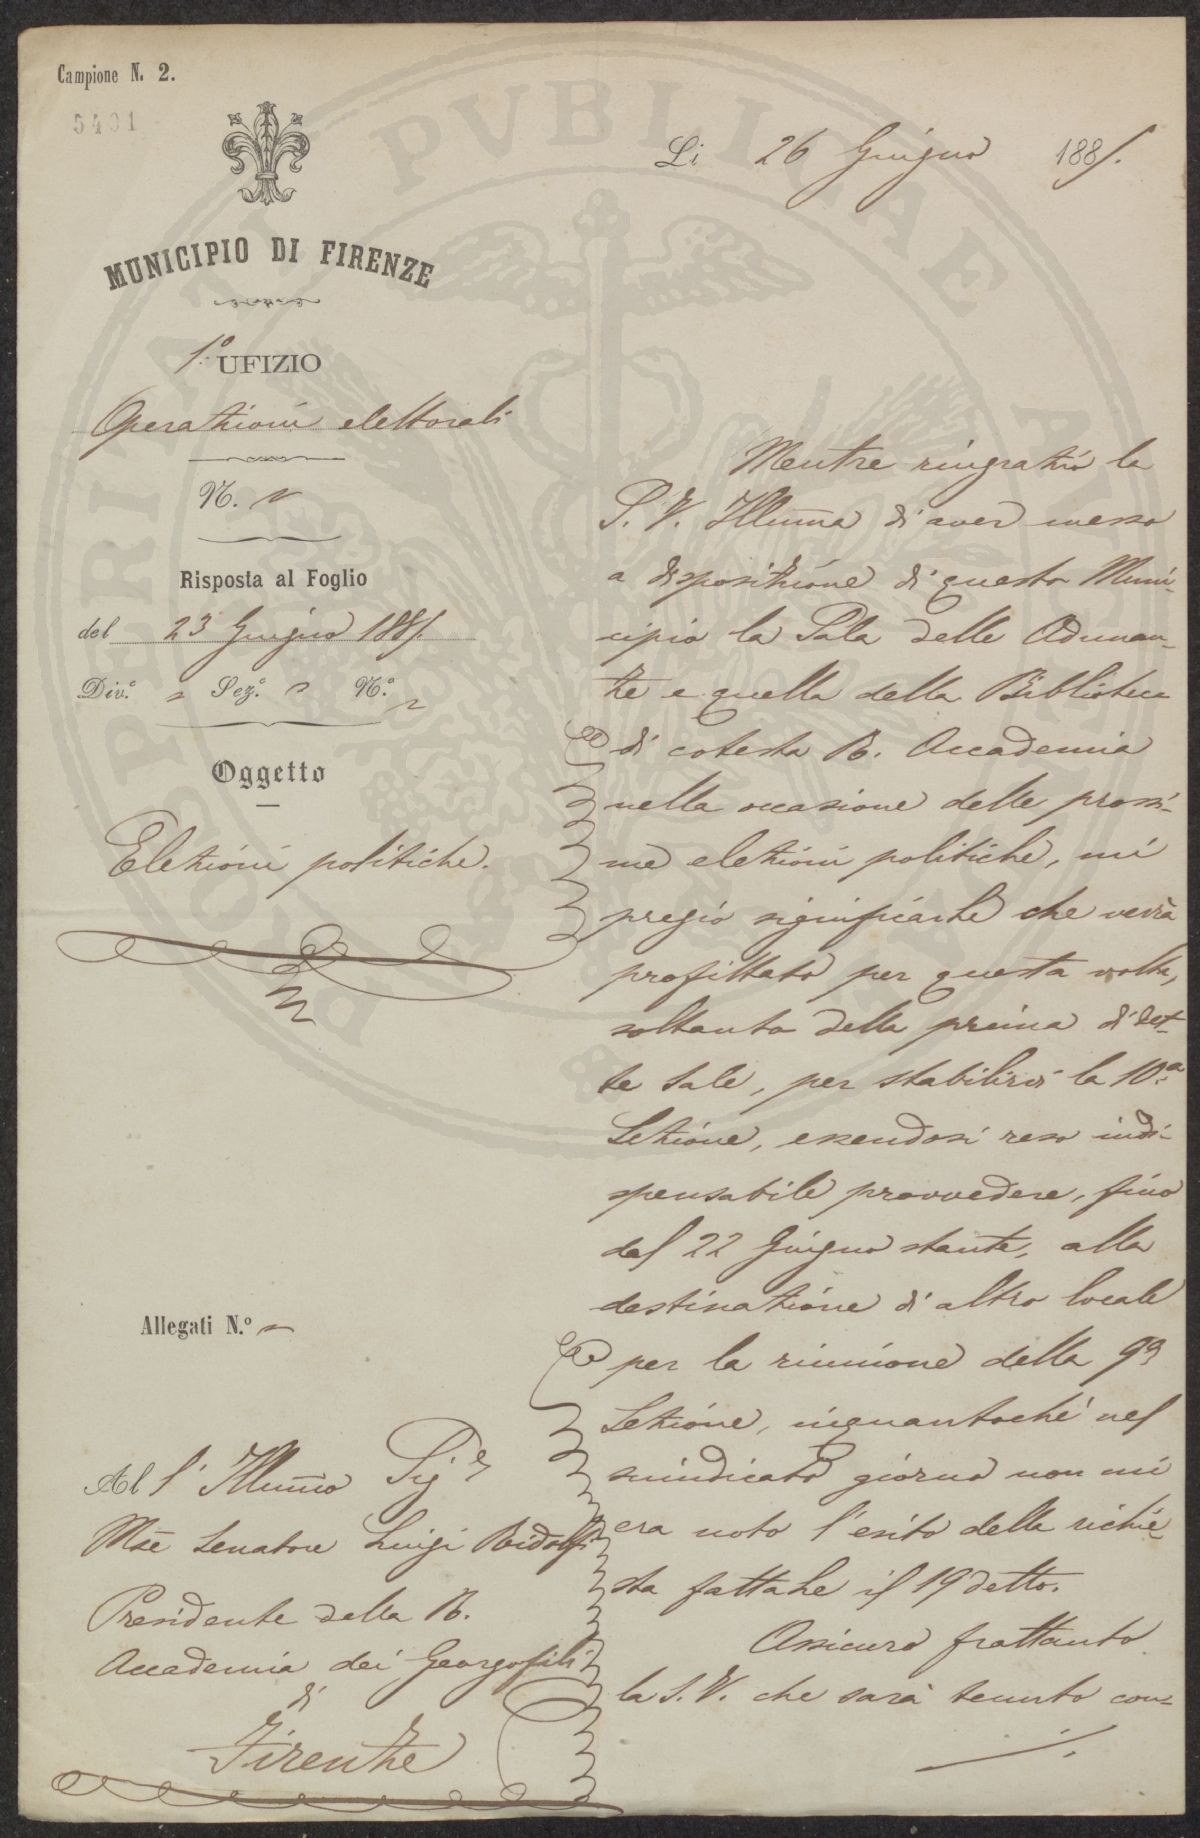 Campione N. 2.
5401
Li 26 Giugno 1881.
MUNICIPIO DI FIRENZE
1.° UFIZIO
Operazioni elettorali
N.
Risposta al Foglio
del 23 Giugno 1881.
Div.e Sez.e N.o
Oggetto
Elezioni politiche.
Allegati N.o
All' Illmo Sigr
Mse Senatore Luigi Ridolfi
Presidente della R.
Accademia dei Georgofili
di
Firenze
Mentre ringrazio la
S. V. Illma di aver messo
a disposizione di questo Muni-
cipio la Sala delle Adunan-
ze e quella della Biblioteca
di cotesta R. Accademia
nella occasione delle prossi-
me elezioni politiche, mi
pregio significarle che verrà
profittato per questa volta,
soltanto della prima di det-
te Sale, per stabilirvi la 10.a
Sezione, essendosi reso indi-
spensabile provvedere, fino
dal 22 Giugno stante, alla
destinazione di altro locale
per la riunione della 9a
Sezione, inquantoché nel
suindicato giorno non mi
era noto l'esito della richie-
sta fattale il 19 detto.
Assicuro frattanto
la S. V. che sarà tenuto con-
./.
PROSPERITATI PVBLICAE AVGENDAE